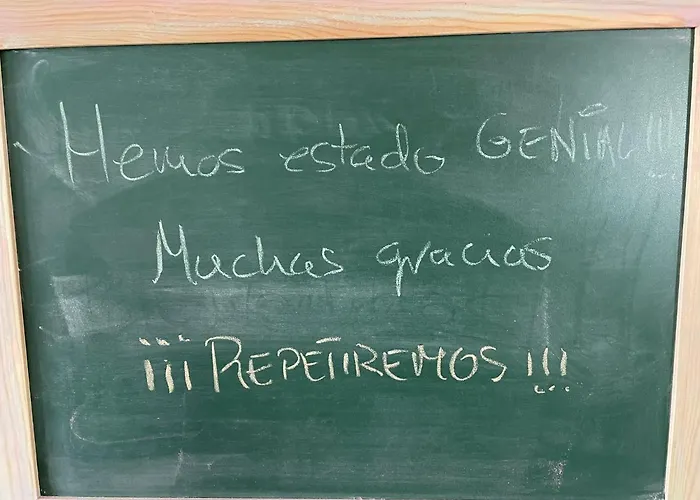 Hemos estado GENIAL!!!
Muchas gracias
¡¡¡REPETIREMOS!!!